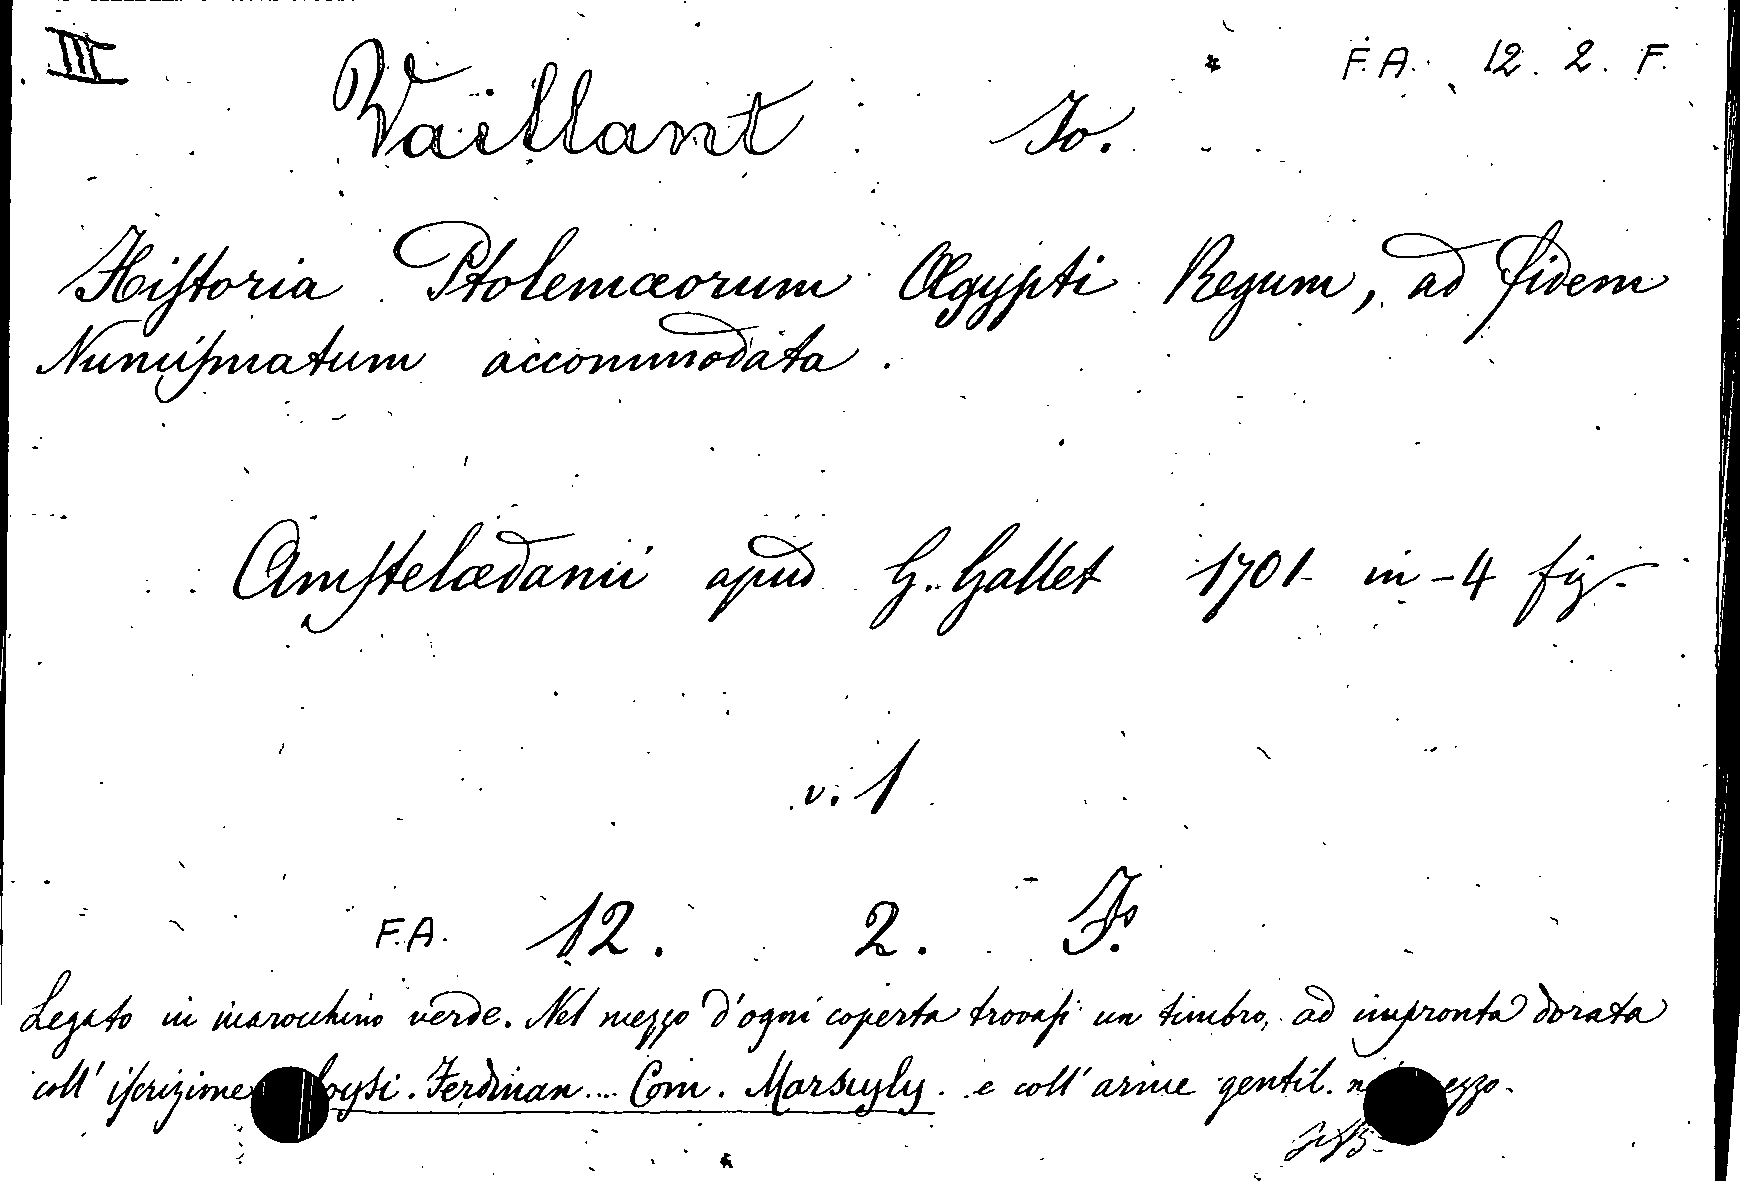 III
* F.A. 12. 2. F.
Vaillant Jo.
Hiſtoria Ptolemæorum Ægypti Regum, ad fidem
Numiſmatum accommodata.
Amſtelædami apud G. Gallet 1701 in-4 fig.
v. 1
F.A. 12. 2. F.
Legato in marocchino verde. Nel mezzo d'ogni coperta trovaſi un timbro, ad impronta dorata
coll' iſcrizione loysi. Ferdinan... Com. Marsyly. e coll' arme gentil.